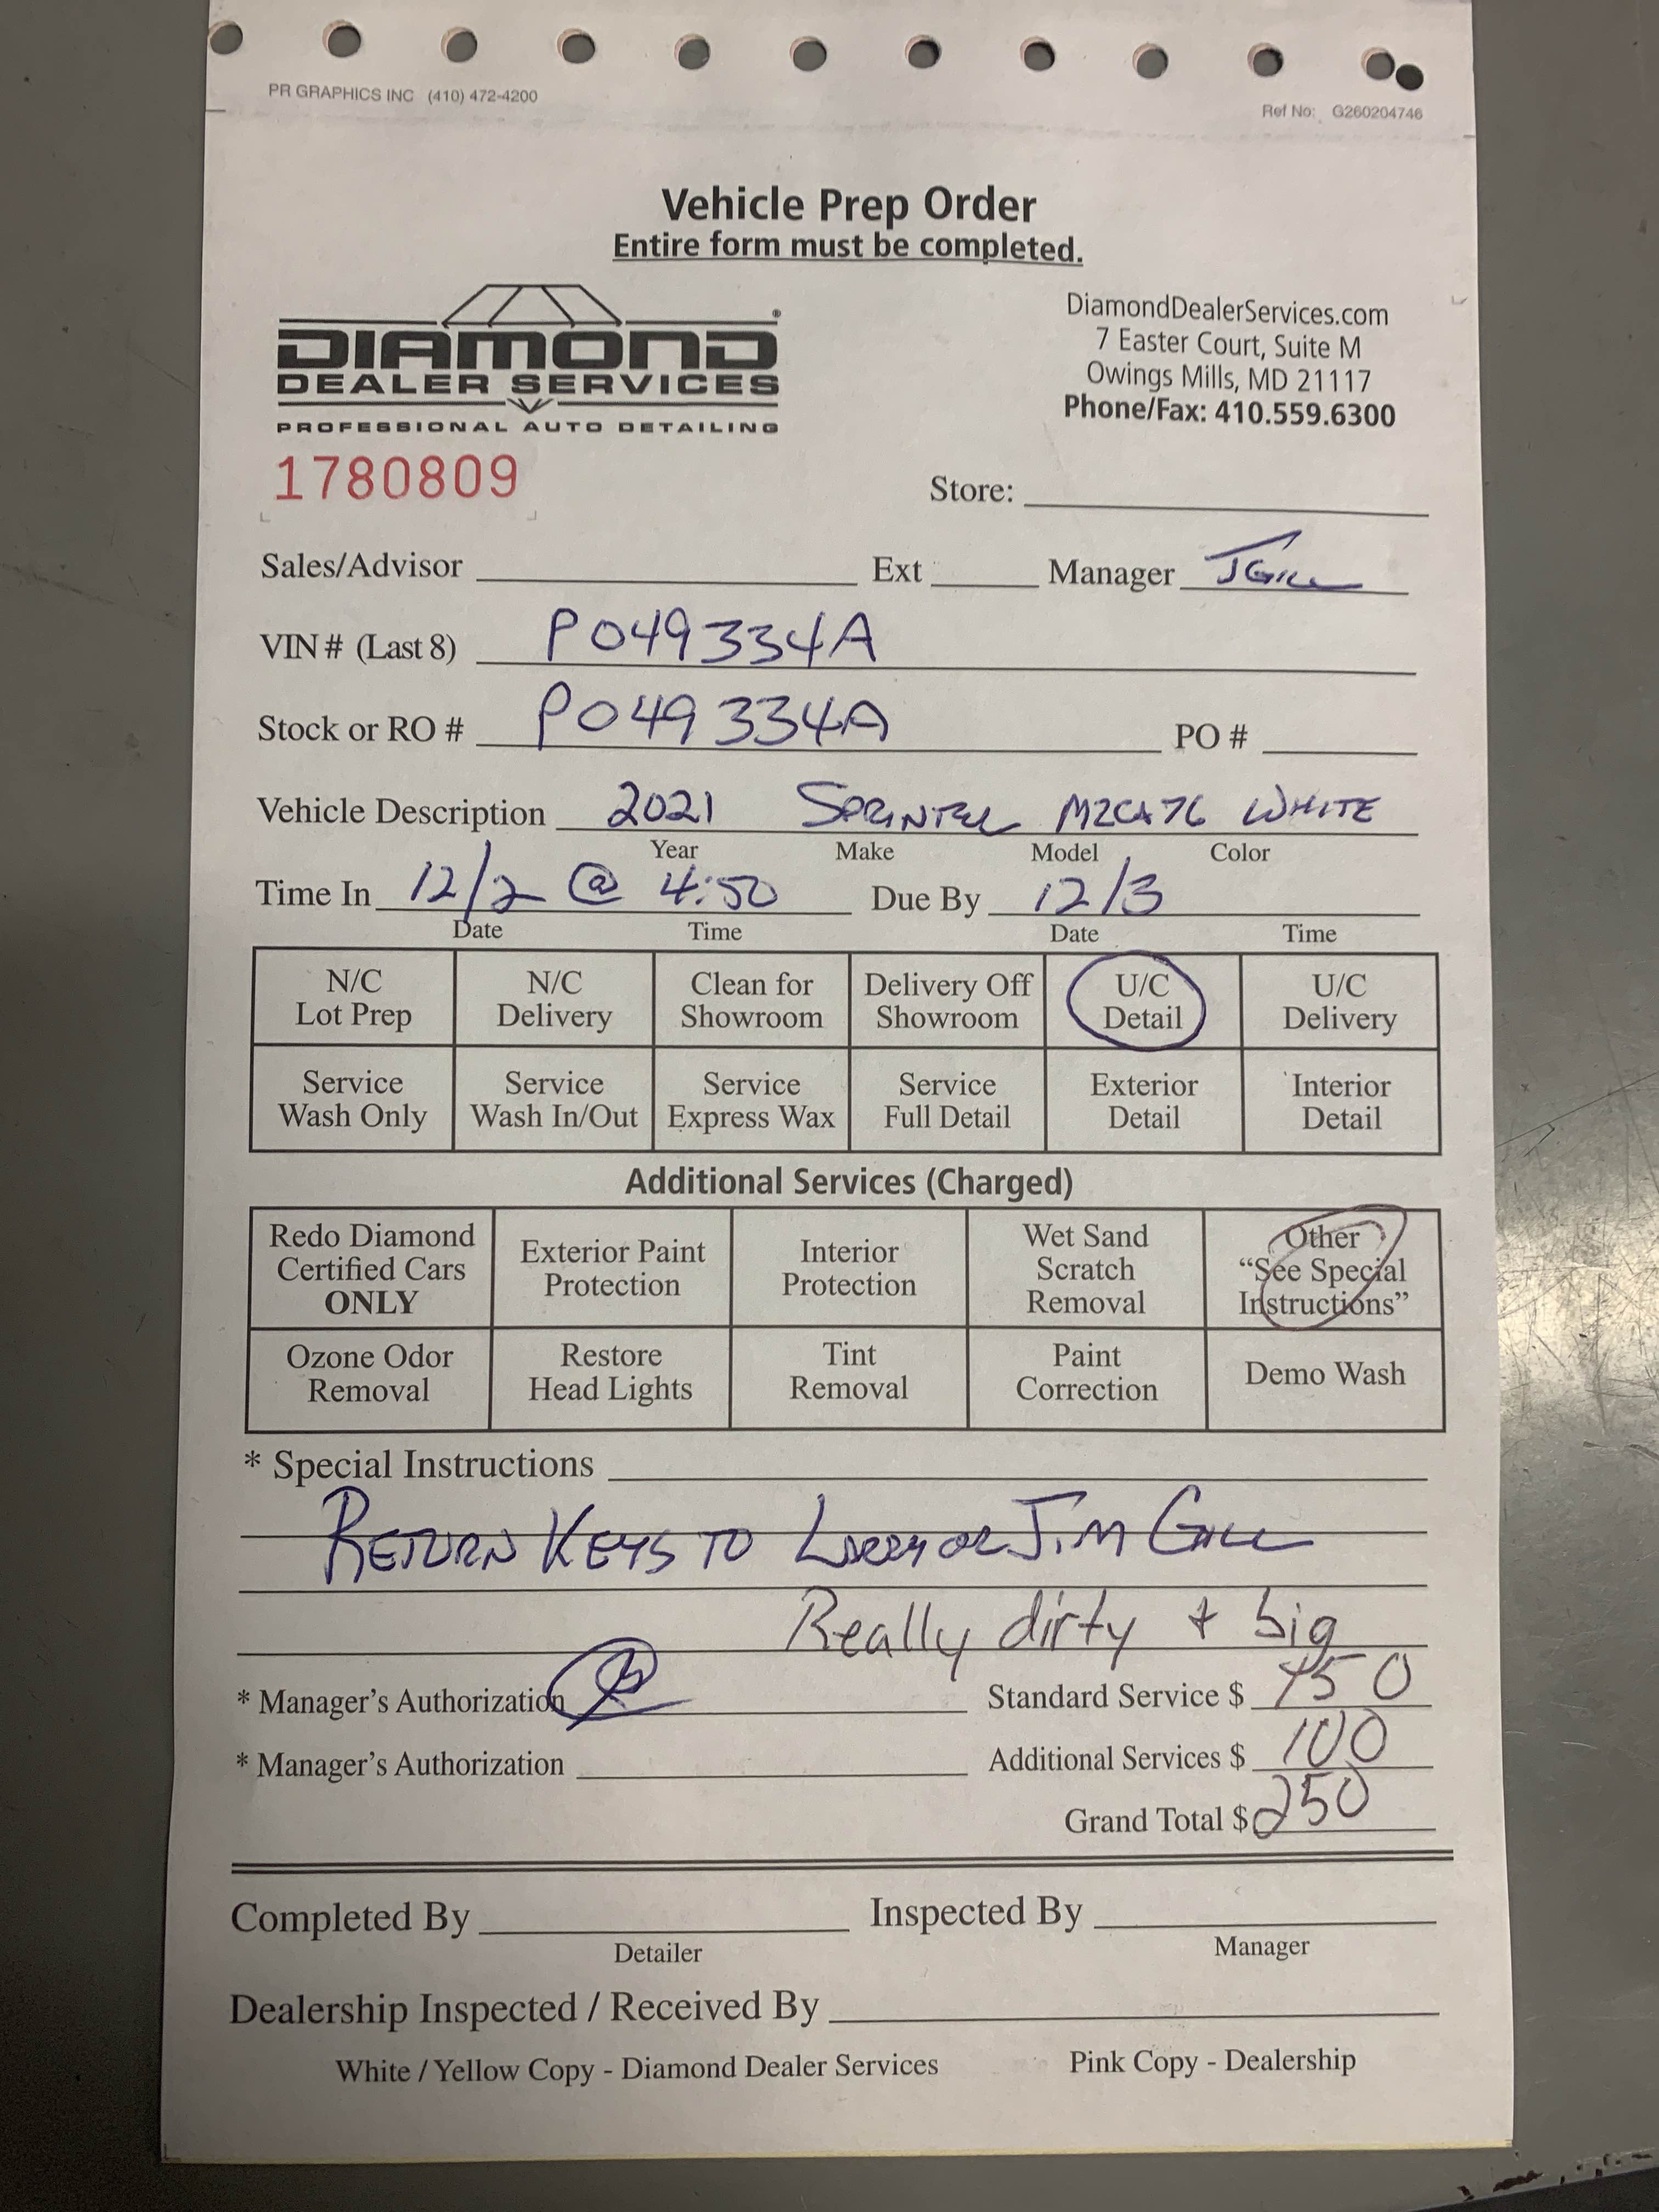 PR GRAPHICS INC (410) 472-4200
Ref No: G260204746
Vehicle Prep Order
Entire form must be completed.
DIAMOND®
DEALER SERVICES
PROFESSIONAL AUTO DETAILING
DiamondDealerServices.com
7 Easter Court, Suite M
Owings Mills, MD 21117
Phone/Fax: 410.559.6300
1780809
Store:
Sales/Advisor Ext Manager J GILL
VIN # (Last 8) P049334A
Stock or RO # P049334A PO #
Vehicle Description 2021 SPRINTER M2CA76 WHITE
Year Make Model Color
Time In 12/2 @ 4:50 Due By 12/3
Date Time Date Time
N/C Lot Prep
N/C Delivery
Clean for Showroom
Delivery Off Showroom
U/C Detail
U/C Delivery
Service Wash Only
Service Wash In/Out
Service Express Wax
Service Full Detail
Exterior Detail
Interior Detail
Additional Services (Charged)
Redo Diamond Certified Cars ONLY
Exterior Paint Protection
Interior Protection
Wet Sand Scratch Removal
Other "See Special Instructions"
Ozone Odor Removal
Restore Head Lights
Tint Removal
Paint Correction
Demo Wash
* Special Instructions
RETURN KEYS TO LARRY OR JIM GILL
Really dirty + big
* Manager's Authorization Standard Service $ 150
* Manager's Authorization Additional Services $ 100
Grand Total $ 250
Completed By Inspected By
Detailer Manager
Dealership Inspected / Received By
White / Yellow Copy - Diamond Dealer Services Pink Copy - Dealership